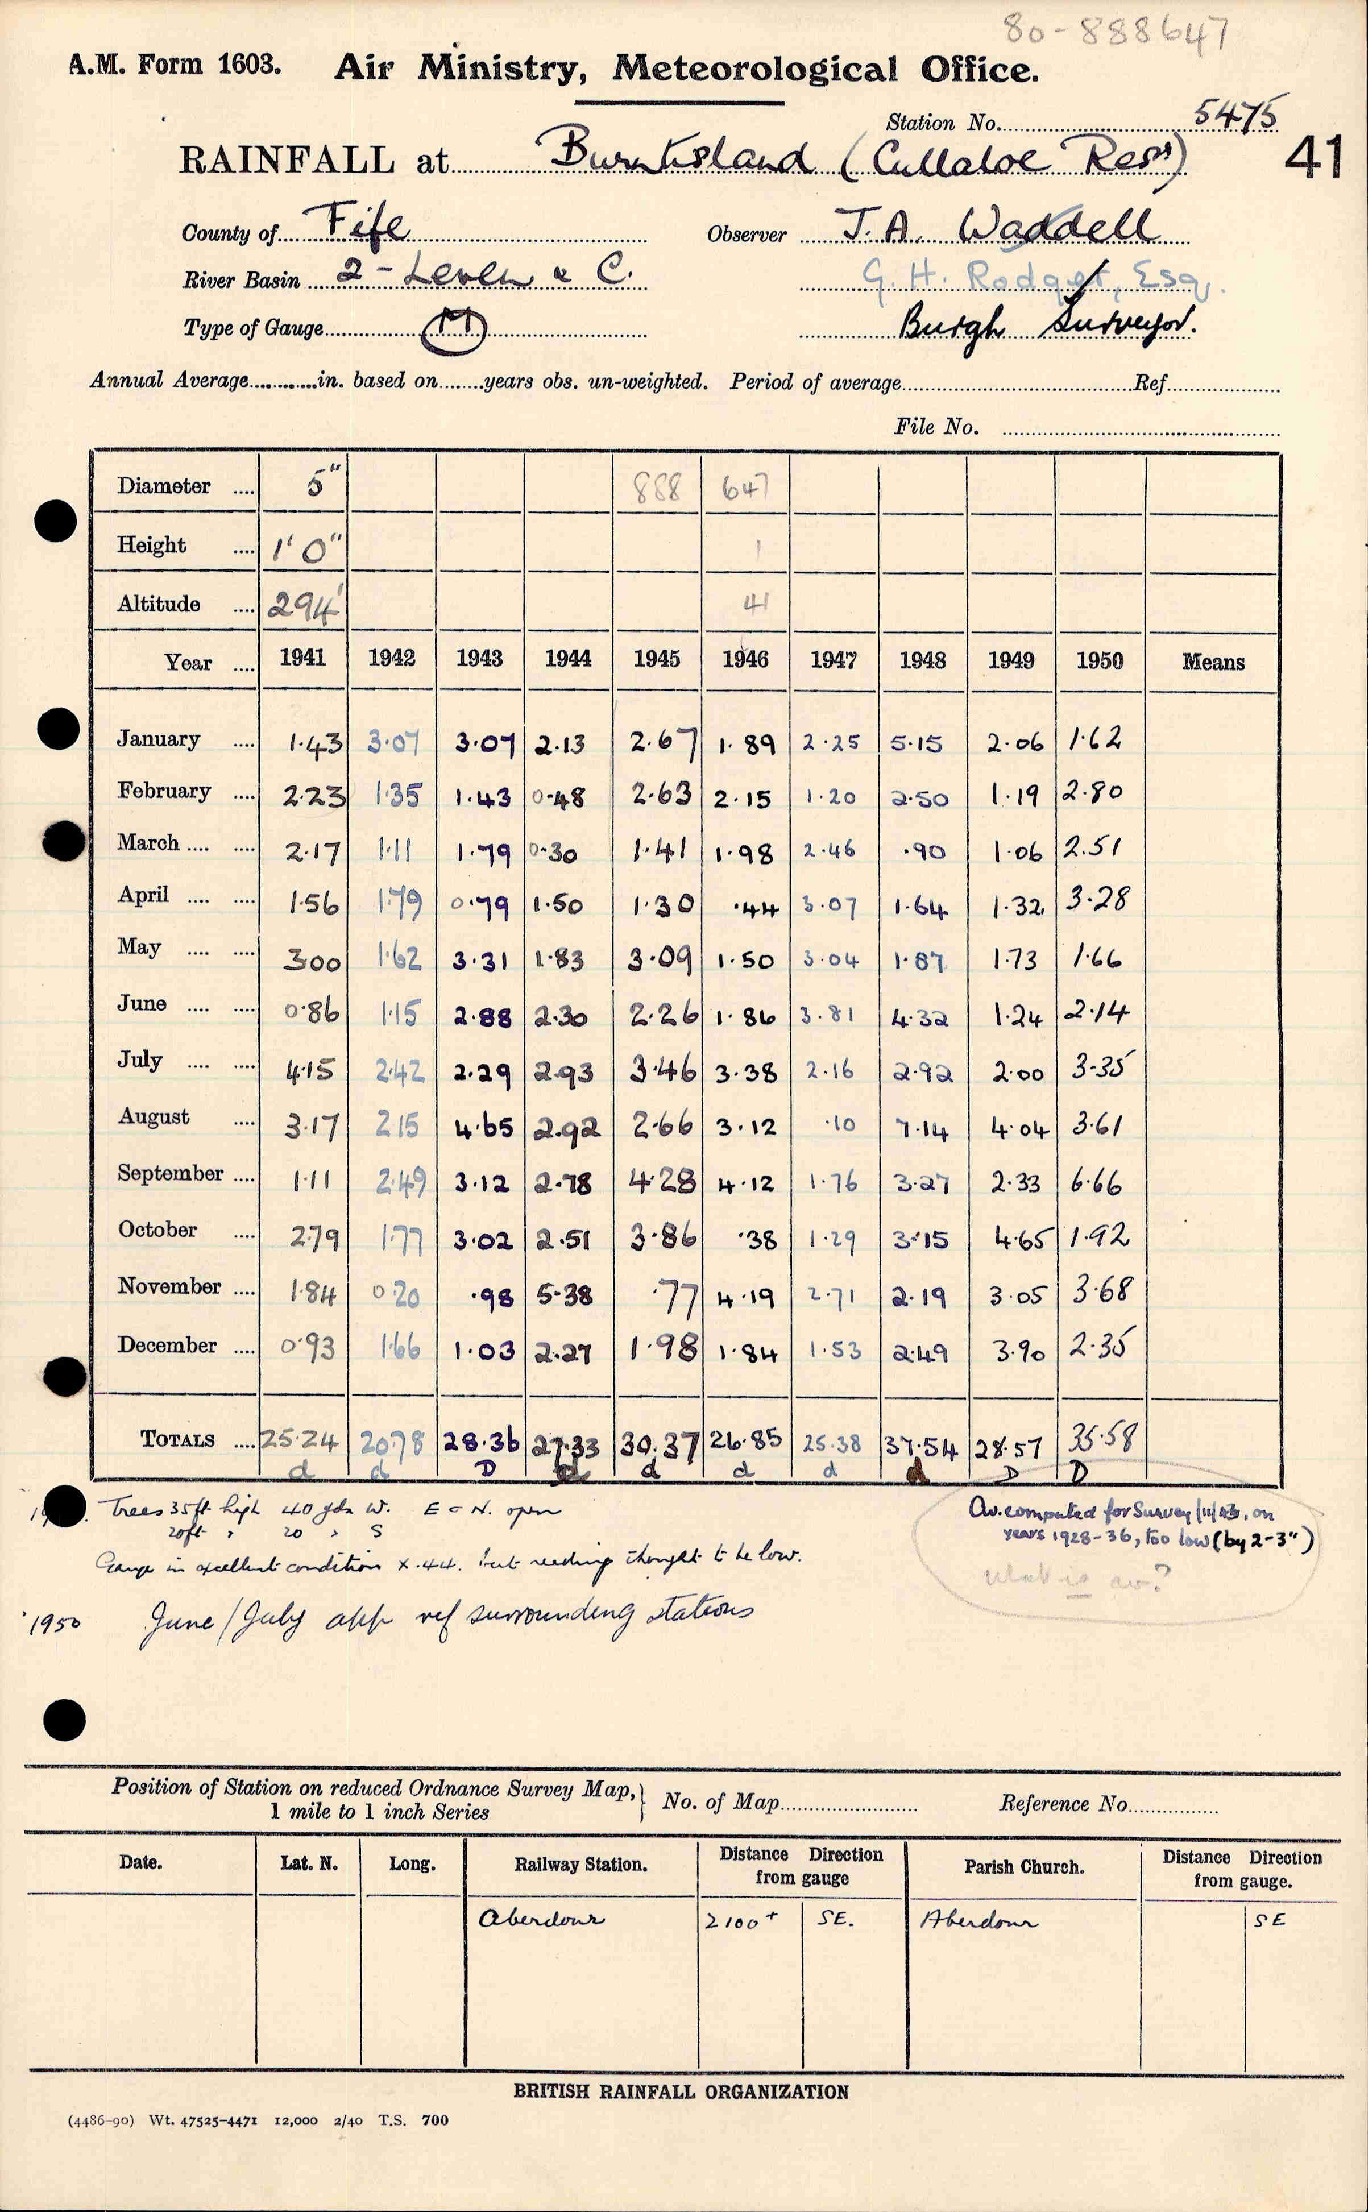 80-888647
A.M. Form 1603. Air Ministry, Meteorological Office.
Station No. 5475
RAINFALL at Burntisland (Cullaloe Resrs) 41
County of Fife Observer J.A. Waddell
River Basin 2 - Leven & C. G. H. Rodger, Esq.
Type of Gauge M Burgh Surveyor.
Annual Average in. based on years obs. un-weighted. Period of average Ref
File No.
Diameter .... 5" 888 647
Height .... 1' 0" 1
Altitude .... 294' 41
Year .... 1941 1942 1943 1944 1945 1946 1947 1948 1949 1950 Means
January .... 1.43 3.07 3.07 2.13 2.67 1.89 2.25 5.15 2.06 1.62
February .... 2.23 1.35 1.43 0.48 2.63 2.15 1.20 2.50 1.19 2.80
March .... .... 2.17 1.11 1.79 0.30 1.41 1.98 2.46 .90 1.06 2.51
April .... .... 1.56 1.79 0.79 1.50 1.30 .44 3.07 1.64 1.32 3.28
May .... .... 3.00 1.62 3.31 1.83 3.09 1.50 3.04 1.87 1.73 1.66
June .... .... 0.86 1.15 2.88 2.30 2.26 1.86 3.81 4.32 1.24 2.14
July .... .... 4.15 2.42 2.29 2.93 3.46 3.38 2.16 2.92 2.00 3.35
August .... 3.17 2.15 4.65 2.92 2.66 3.12 .10 7.14 4.04 3.61
September .... 1.11 2.49 3.12 2.78 4.28 4.12 1.76 3.27 2.33 6.66
October .... 2.79 1.77 3.02 2.51 3.86 .38 1.29 3.15 4.65 1.92
November .... 1.84 0.20 .98 5.38 .77 4.19 2.71 2.19 3.05 3.68
December .... 0.93 1.66 1.03 2.27 1.98 1.84 1.53 2.49 3.90 2.35
TOTALS .... 25.24 20.78 28.36 27.33 30.37 26.85 25.38 37.54 28.57 35.58
d d D d d d d d D D
Trees 35ft high 40 yds W. E & N. open
20ft " 20 " S
Gauge in excellent condition x.44. but reading thought to be low.
Av. computed for Survey, on
years 1928-36, too low (by 2-3")
what is av?
1950 June/July app ref surrounding stations
Position of Station on reduced Ordnance Survey Map,
1 mile to 1 inch Series
No. of Map Reference No.
Date. Lat. N. Long. Railway Station. Distance Direction from gauge Parish Church. Distance Direction from gauge.
Aberdour 2100+ SE. Aberdour SE
BRITISH RAINFALL ORGANIZATION
(4486-90) Wt. 47525-4471 12,000 2/40 T.S. 700